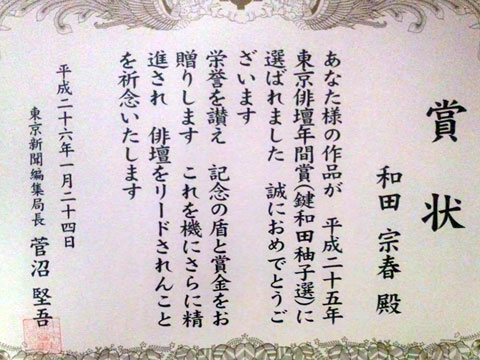 賞状
和田 宗春 殿
あなた様の作品が 平成二十五年
東京俳壇年間賞(鍵和田柚子選)に
選ばれました 誠におめでとうご
ざいます
栄誉を讃え 記念の盾と賞金をお
贈りします これを機にさらに精
進され 俳壇をリードされんこと
を祈念いたします
平成二十六年一月二十四日
東京新聞編集局長 菅沼 堅吾